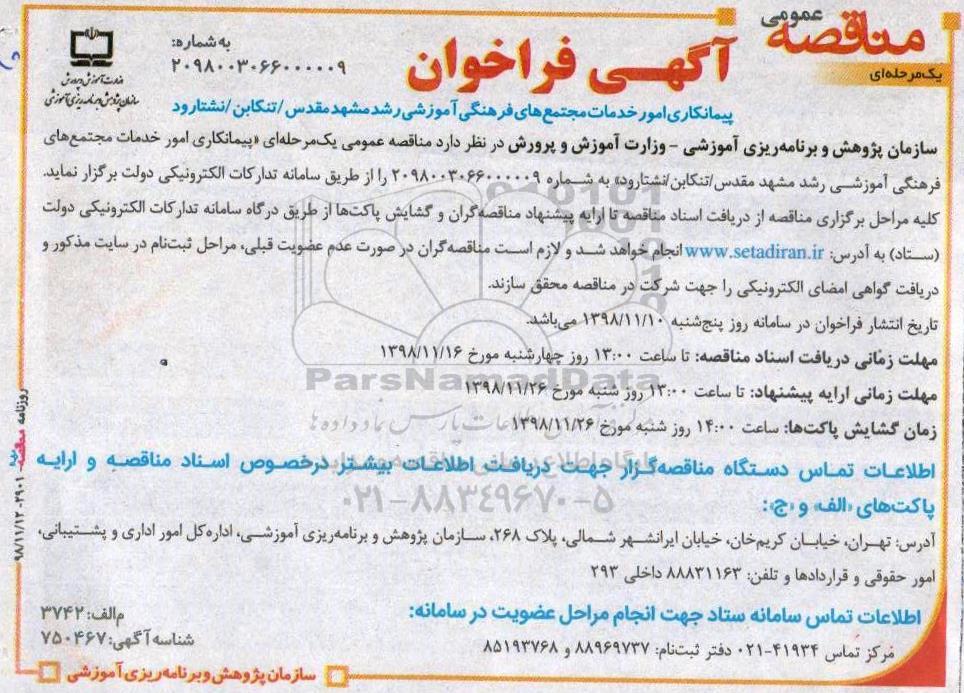 مناقصه عمومی
یک‌مرحله‌ای
آگهی فراخوان
به شماره:
۲۰۹۸۰۰۳۰۶۶۰۰۰۰۰۹
وزارت آموزش و پرورش
سازمان پژوهش و برنامه‌ریزی آموزشی
پیمانکاری امور خدمات مجتمع‌های فرهنگی آموزشی رشد مشهد مقدس/تنکابن/نشتارود
سازمان پژوهش و برنامه‌ریزی آموزشی - وزارت آموزش و پرورش در نظر دارد مناقصه عمومی یک‌مرحله‌ای «پیمانکاری امور خدمات مجتمع‌های
فرهنگی آموزشی رشد مشهد مقدس/تنکابن/نشتارود» به شماره ۲۰۹۸۰۰۳۰۶۶۰۰۰۰۰۹ را از طریق سامانه تدارکات الکترونیکی دولت برگزار نماید.
کلیه مراحل برگزاری مناقصه از دریافت اسناد مناقصه تا ارایه پیشنهاد مناقصه‌گران و گشایش پاکت‌ها از طریق درگاه سامانه تدارکات الکترونیکی دولت
(ستاد) به آدرس: www.setadiran.ir انجام خواهد شد و لازم است مناقصه‌گران در صورت عدم عضویت قبلی، مراحل ثبت‌نام در سایت مذکور و
دریافت گواهی امضای الکترونیکی را جهت شرکت در مناقصه محقق سازند.
تاریخ انتشار فراخوان در سامانه روز پنج‌شنبه ۱۳۹۸/۱۱/۱۰ می‌باشد.
مهلت زمانی دریافت اسناد مناقصه: تا ساعت ۱۳:۰۰ روز چهارشنبه مورخ ۱۳۹۸/۱۱/۱۶
مهلت زمانی ارایه پیشنهاد: تا ساعت ۱۳:۰۰ روز شنبه مورخ ۱۳۹۸/۱۱/۲۶
زمان گشایش پاکت‌ها: ساعت ۱۴:۰۰ روز شنبه مورخ ۱۳۹۸/۱۱/۲۶
ParsNamadData
۰۲۱-۸۸۳۴۹۶۷۰-۵
اطلاعات تماس دستگاه مناقصه‌گزار جهت دریافت اطلاعات بیشتر درخصوص اسناد مناقصه و ارایه
پاکت‌های «الف» و «ج»:
آدرس: تهران، خیابان کریم‌خان، خیابان ایرانشهر شمالی، پلاک ۲۶۸، سازمان پژوهش و برنامه‌ریزی آموزشی، اداره‌کل امور اداری و پشتیبانی،
امور حقوقی و قراردادها و تلفن: ۸۸۸۳۱۱۶۳ داخلی ۲۹۳
اطلاعات تماس سامانه ستاد جهت انجام مراحل عضویت در سامانه:
مرکز تماس ۴۱۹۳۴-۰۲۱ دفتر ثبت‌نام: ۸۸۹۶۹۷۳۷ و ۸۵۱۹۳۷۶۸
م‌الف: ۳۷۴۲
شناسه آگهی: ۷۵۰۴۶۷
سازمان پژوهش و برنامه‌ریزی آموزشی
روزنامه مناقصه ۲۹۰۱- ۹۸/۱۱/۱۲